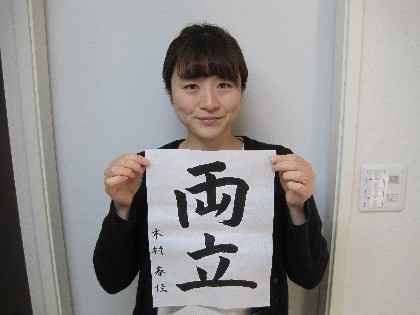 両立
木村春佳